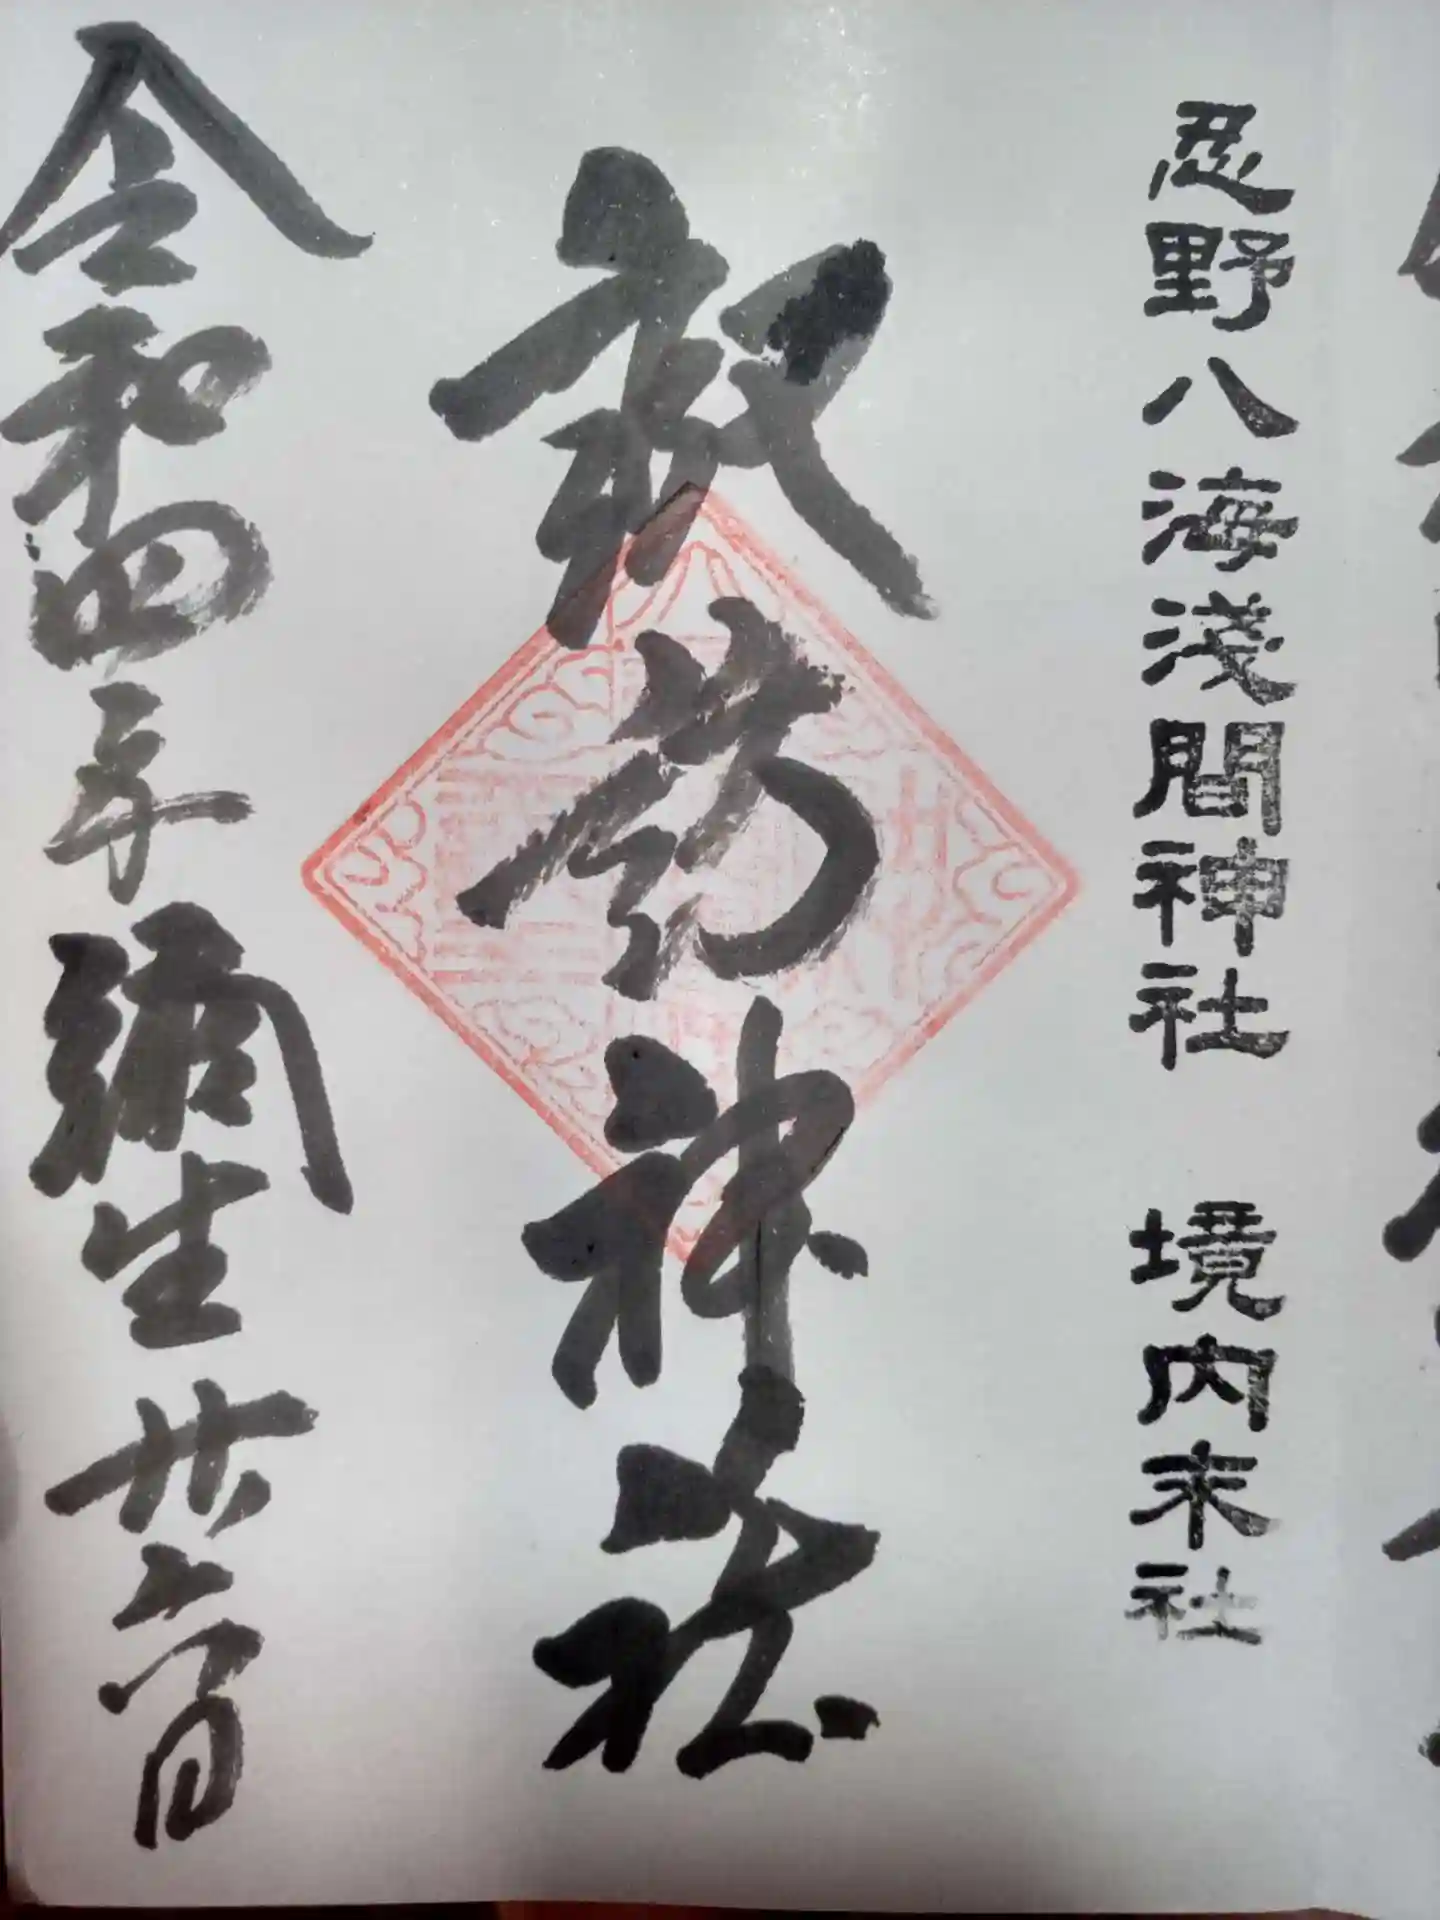 忍野八海淺間神社 境内末社
神社
令和四年彌生廿六日